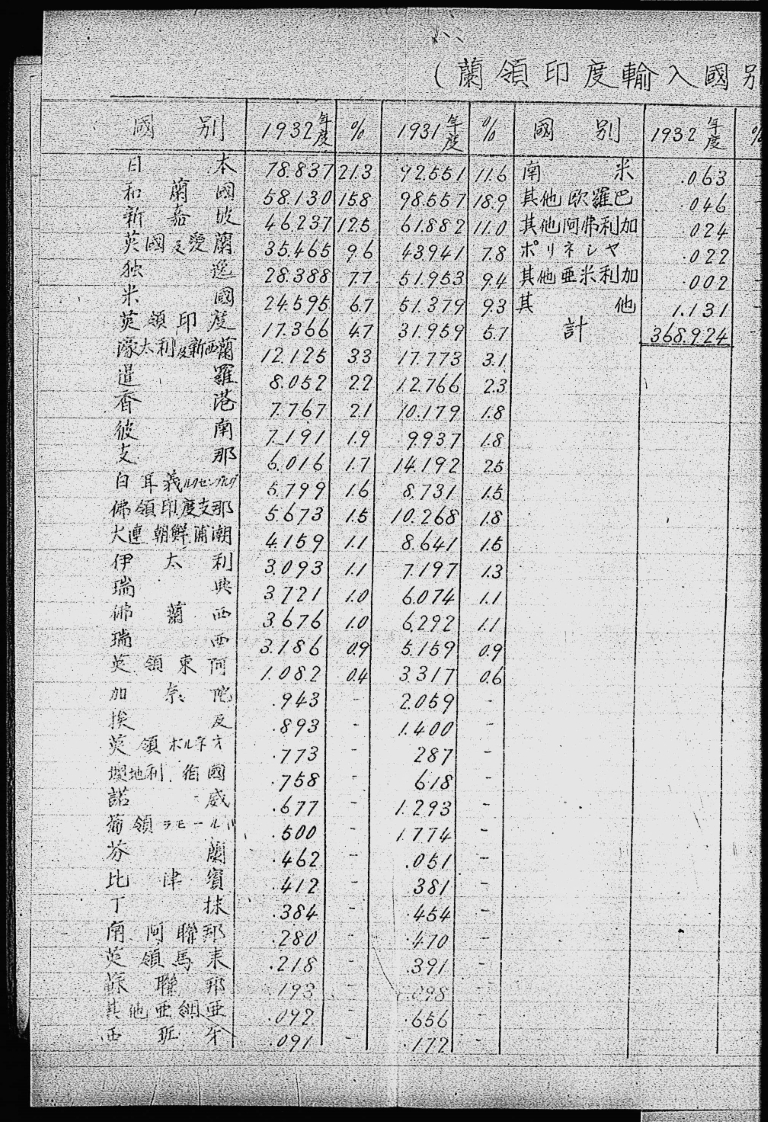 (蘭領印度輸入國別
國別 1932年度 % 1931年度 % 國別 1932年度 %
日本 78.837 21.3 92.551 11.6 南米 .063
和蘭國 58.130 15.8 98.557 18.9 其他欧羅巴 .046
新嘉坡 46.237 12.5 61.882 11.0 其他阿弗利加 .024
英國及愛蘭 35.465 9.6 43.941 7.8 ポリネシヤ .022
独逸 28.388 7.7 51.953 9.4 其他亜米利加 .002
米國 24.595 6.7 51.379 9.3 其他 1.131
英領印度 17.366 4.7 31.959 5.7 計 368.924
濠太利及新西蘭 12.125 3.3 17.773 3.1
暹羅 8.052 2.2 12.766 2.3
香港 7.767 2.1 10.179 1.8
彼南 7.191 1.9 9.937 1.8
支那 6.016 1.7 14.192 2.5
白耳義ルクセンブルグ 5.799 1.6 8.731 1.5
佛領印度支那 5.673 1.5 10.268 1.8
大連朝鮮浦潮 4.159 1.1 8.641 1.5
伊太利 3.093 1.1 7.197 1.3
瑞典 3.721 1.0 6.074 1.1
佛蘭西 3.676 1.0 6.292 1.1
瑞西 3.186 0.9 5.159 0.9
英領東阿 1.082 0.4 3.317 0.6
加奈陀 .943 - 2.059 -
挨及 .893 - 1.400 -
英領ボルネオ .773 - 287 -
墺地利匈國 .758 - 618 -
諾威 .677 - 1.293 -
葡領チモール .500 - 1.774 -
芬蘭 .462 - .051 -
比津賓 .412 - 381 -
丁抹 .384 - 454 -
南阿聯邦 .280 - .470 -
英領馬来 .218 - .391 -
蘇聯邦 .193 - .098 -
其他亜細亜 .092 - .656 -
西班牙 .091 - .172 -